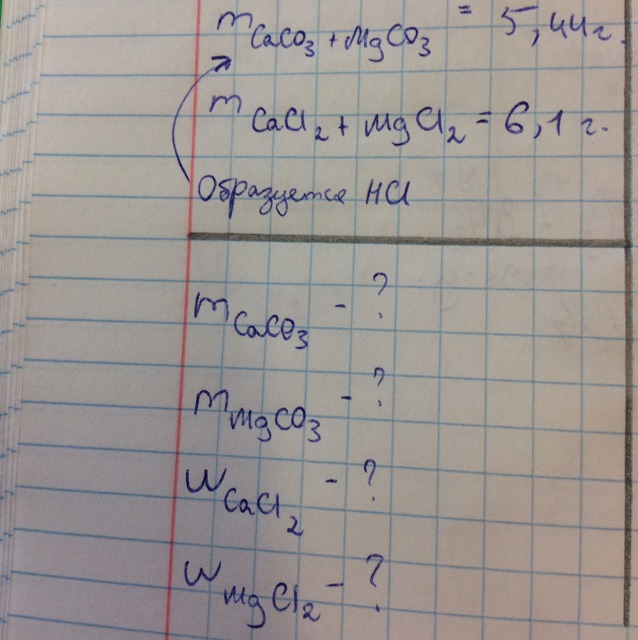 m CaCO₃ + MgCO₃ = 5,44 г.
m CaCl₂ + MgCl₂ = 6,1 г.
Образуется HCl
m CaCO₃ - ?
m MgCO₃ - ?
W CaCl₂ - ?
W MgCl₂ - ?